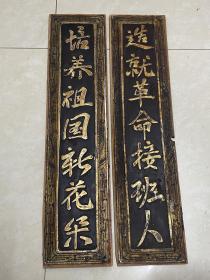 培养祖国新花朵
造就革命接班人